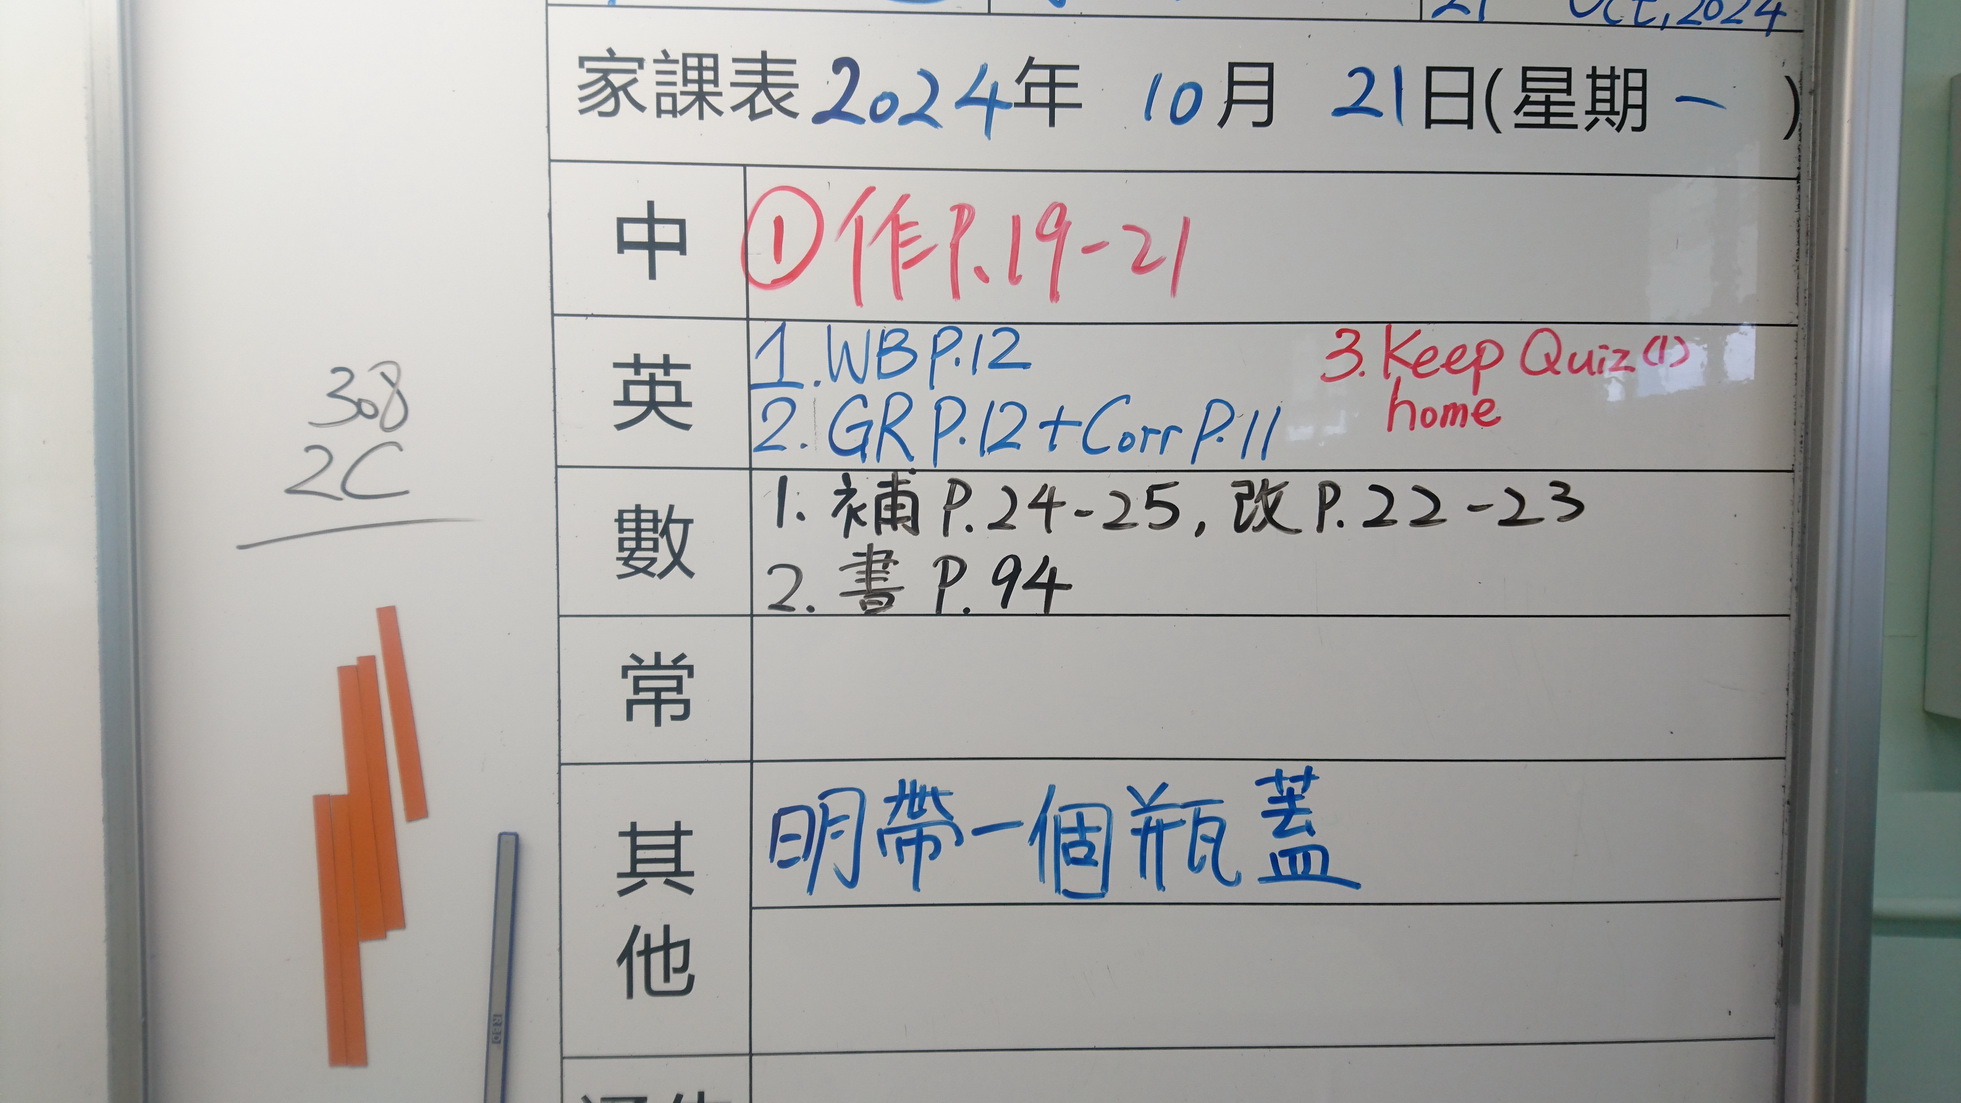 21 Oct, 2024
家課表 2024年 10月 21日(星期一 )
中
① 作 P.19-21
英
1. WB P.12
2. GR P.12 + Corr P.11
3. Keep Quiz (1)
home
數
1. 補 P.24-25, 改 P.22-23
2. 書 P.94
常
其他
明帶一個瓶蓋
308
2C